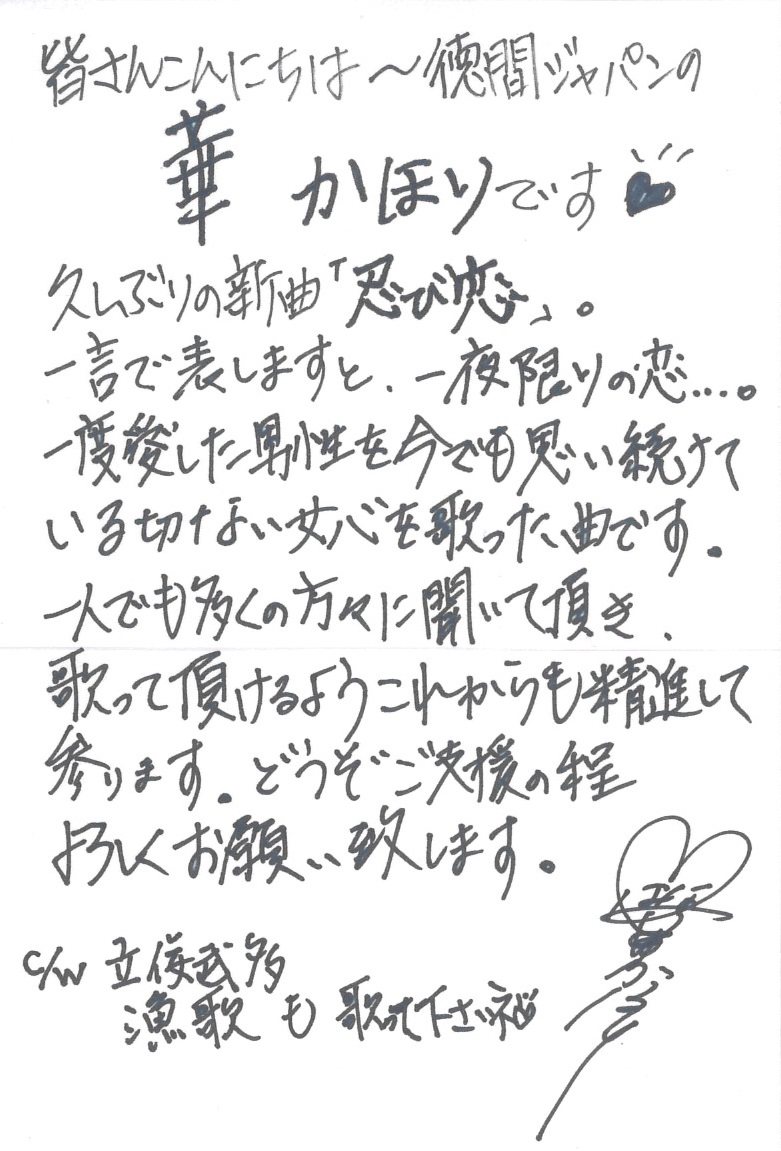 皆さんこんにちは～徳間ジャパンの
華 かほりです♥
久しぶりの新曲「忍び恋」。
一言で表しますと、一夜限りの恋…。
一度愛した男性を今でも思い続けて
いる切ない女心を歌った曲です。
一人でも多くの方々に聞いて頂き、
歌って頂けるようこれからも精進して
参ります。どうぞご支援の程
よろしくお願い致します。
c/w 立佞武多
漁歌 も 歌って下さいね